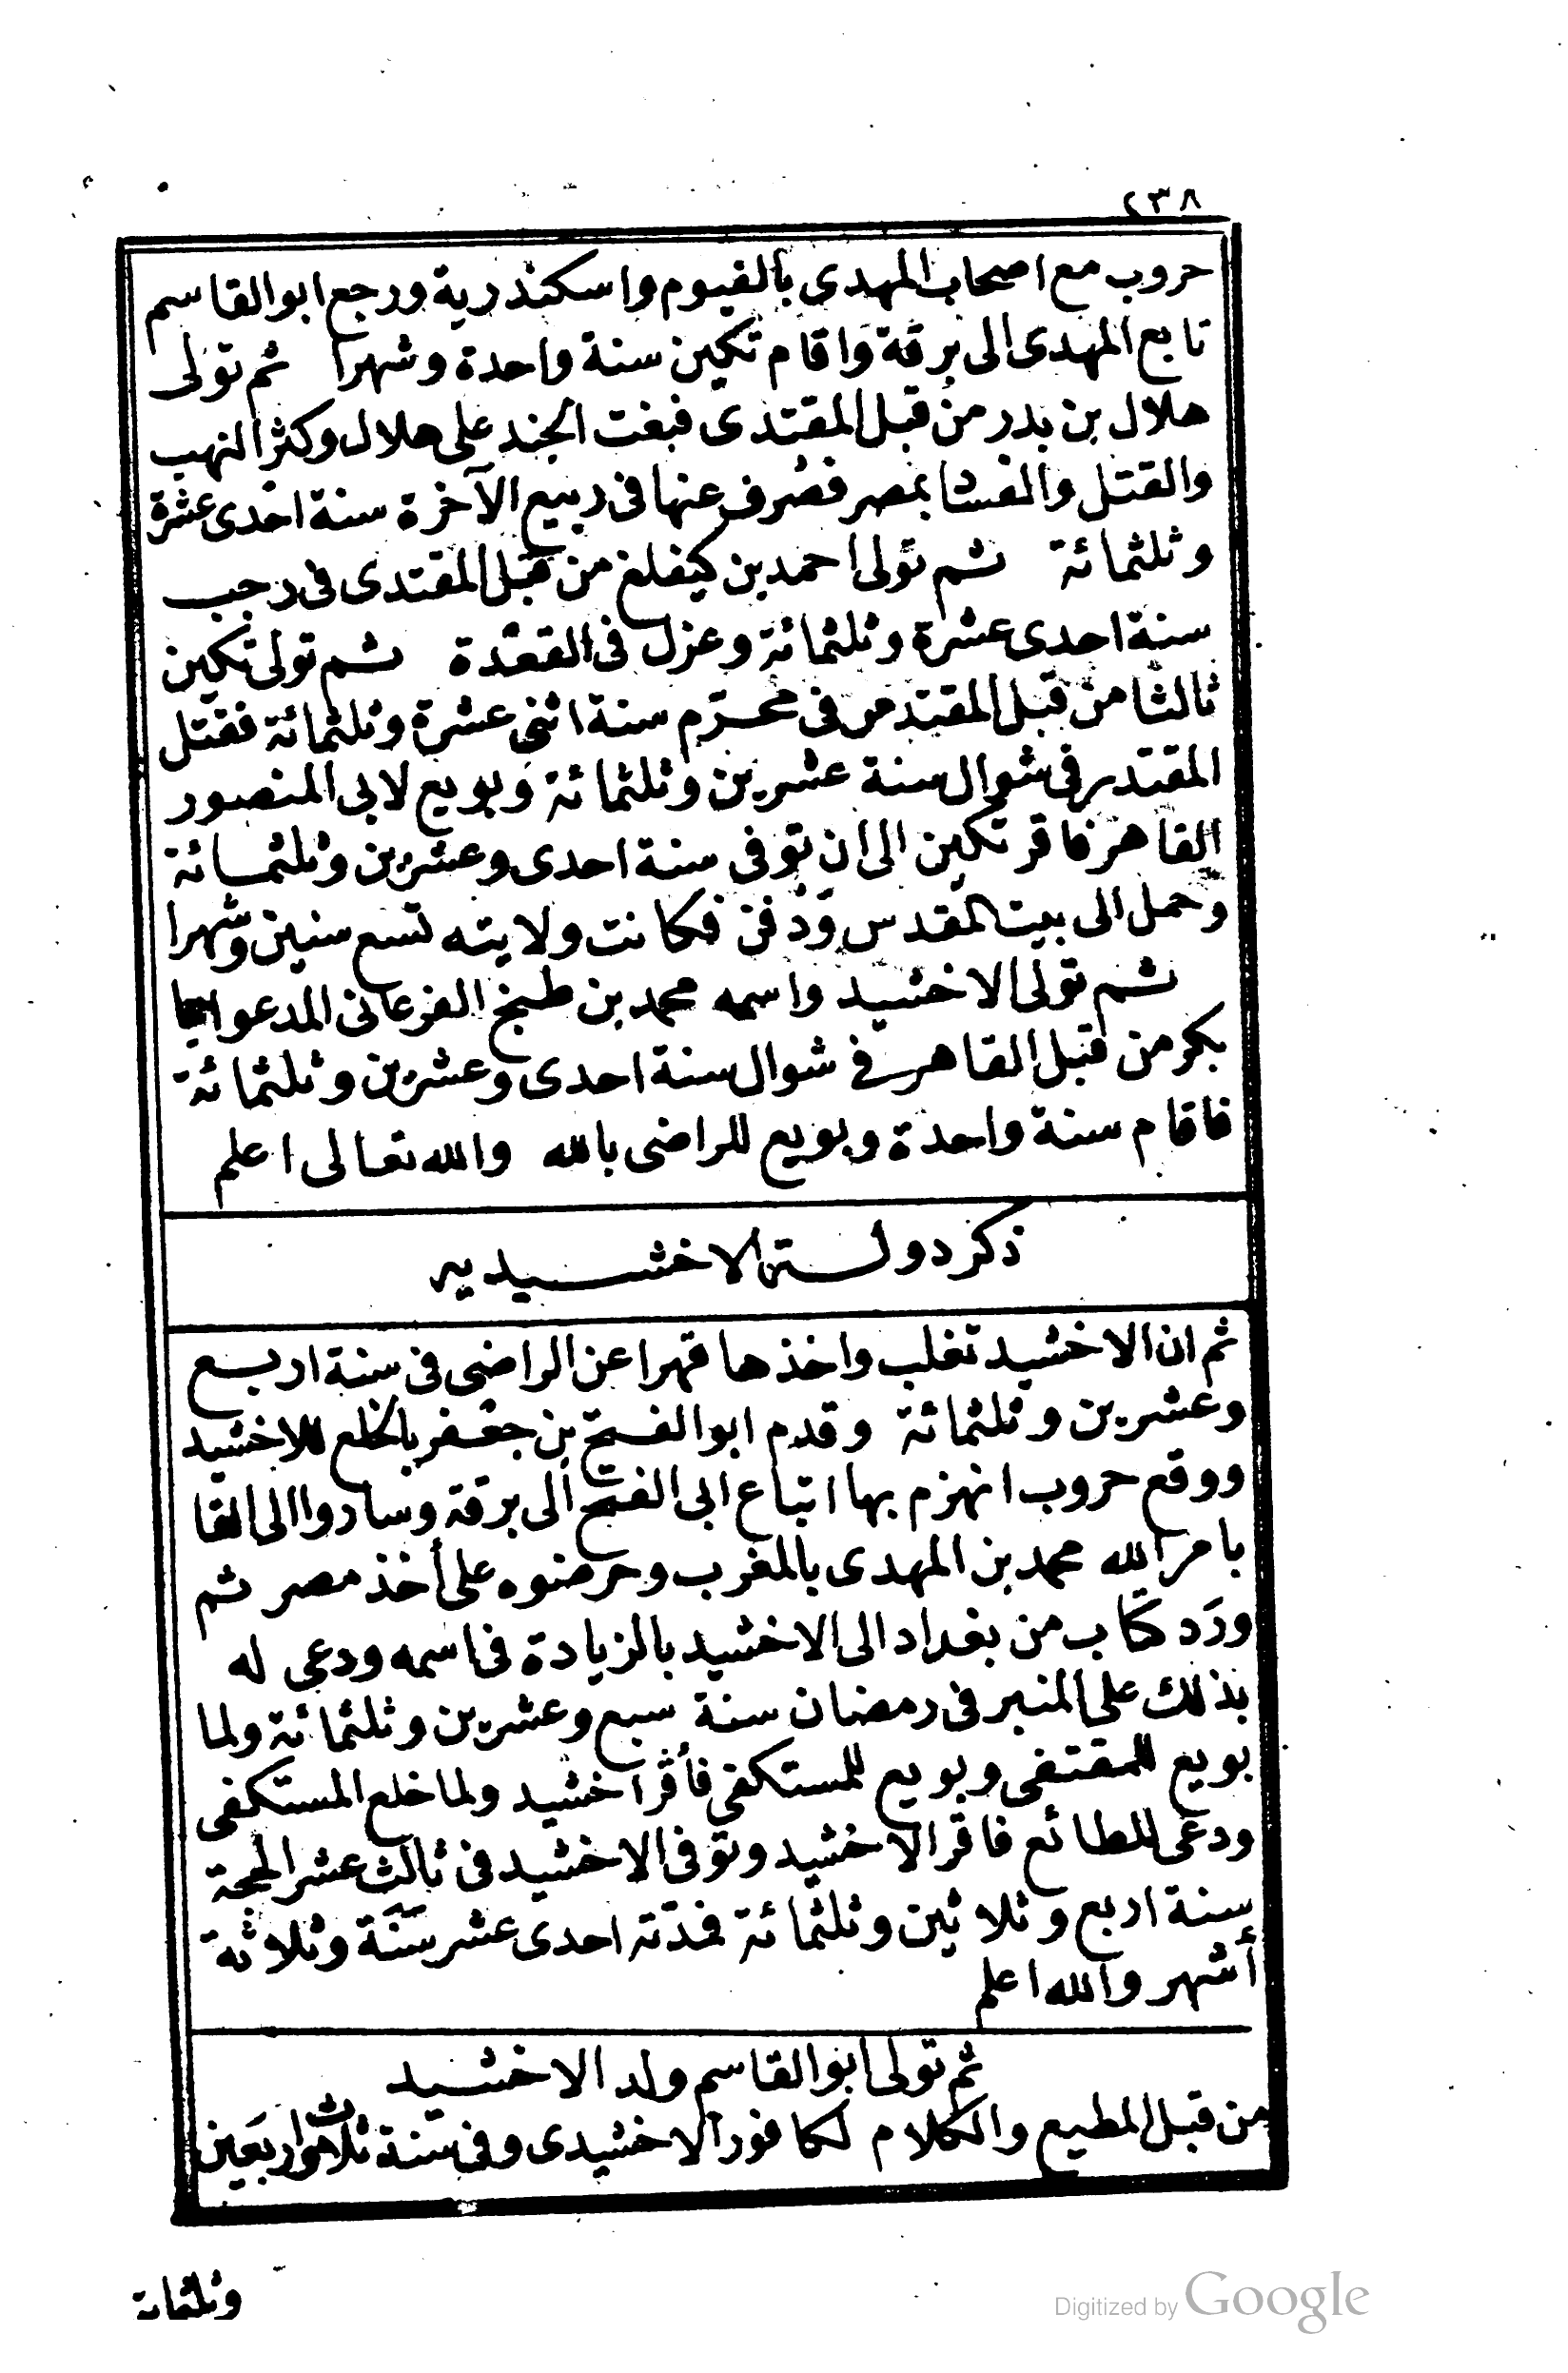 ٢٣٨
حروب مع اصحاب المهدى بالفيوم واسكندرية ورجع ابوالقاسم
تابع المهدى الى برقة واقام تكين سنة واحدة وشهرا ثم تولى
هلال بن بدر من قبل المقتدى فبغت الجند على هلال وكثر النهب
والقتل والفسٰا بمصر فصُرف عنها فى ربيع الآخرة سنة احدى عشرة
وثلثمائة ثم تولى احمد بن كيغلغ من قبل المقتدى فى رجب
سنة احدى عشرة وثلثمائة وعزل فى القعْدة ثم تولى تكين
ثالثا من قبل المقتدر فى محرّم سنة اثنى عشرة وثلثمائة فقتل
المقتدر فى شوال سنة عشرين وثلثمائة وبويع لابى المنصور
القاهر فاقر تكين الى ان توفى سنة احدى وعشرين وثلثمائة
وحمل الى بيت المقدس وَدُفن فكانت ولايته تسع سنين وشهرا
ثم تولى الاخشيد واسمه محمد بن طبخ الفرغانى المدعو
بكر من قبل القاهر فى شوال سنة احدى وعشرين وثلثمائة
فاقام سنة واحدة وبويع للراضى بالله والله تعالى اعلم
ذكر دولة الاخشيديه
ثم ان الاخشيد تغلب واخذها قهرا عن الراضى فى سنة اربع
وعشرين وثلثمائة وقدم ابوالفتح بن جعفر بالخلع للاخشيد
ووقع حروب انهزم بها اتباع ابى الفتح الى برقة وساروا الى القا
بامر الله محمد بن المهدى بالمغرب وحرضوه على أخذ مصر ثم
ورَد كتاب من بغداد الى الاخشيد بالزيادة فى اسمه ودعى له
بذلك على المنبر فى رمضان سنة سبع وعشرين وثلثمائة ولما
بويع للمقتفى وبويع للمستكفى فأقرّ اخشيد ولما خلع المستكفى
ودعى للطائع فاقر الاخشيد وتوفى الاخشيد فى ثالث عشر الحجة
سنة اربع وثلاثين وثلثمائة فمدّته احدى عشر سَنَة وثلاثة
أشهر والله اعلم
ثم تولى ابوالقاسم ولد الاخشيد
من قبل المطيع والكلام لكافور الاخشيدى وفى سنة ثلاث واربعَين
وثلثمائة
Digitized by Google